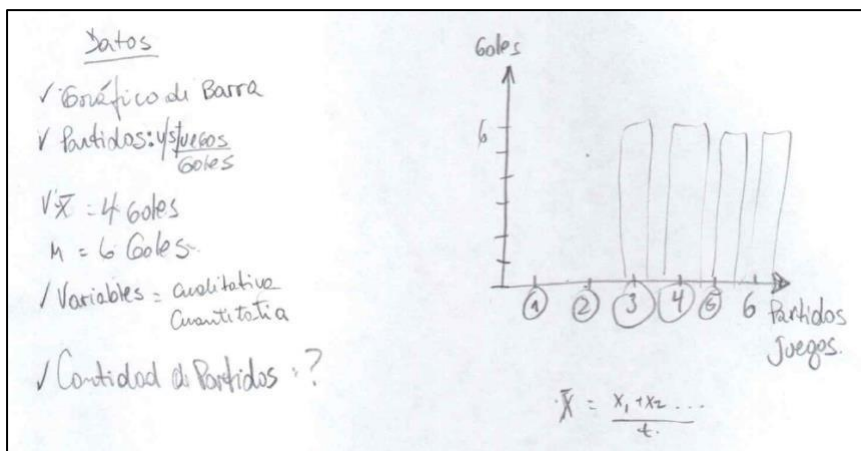 Datos
✓ Gráfico de Barra
✓ Partidos: y/s juegos
Goles
✓ x̄ = 4 Goles
M = 6 Goles
✓ Variables = cualitativa
Cuantitatia
✓ Cantidad de Partidos = ?
Goles
6
1 2 3 4 5 6 Partidos
Juegos.
x̄ = x₁ + x₂ ...
t.